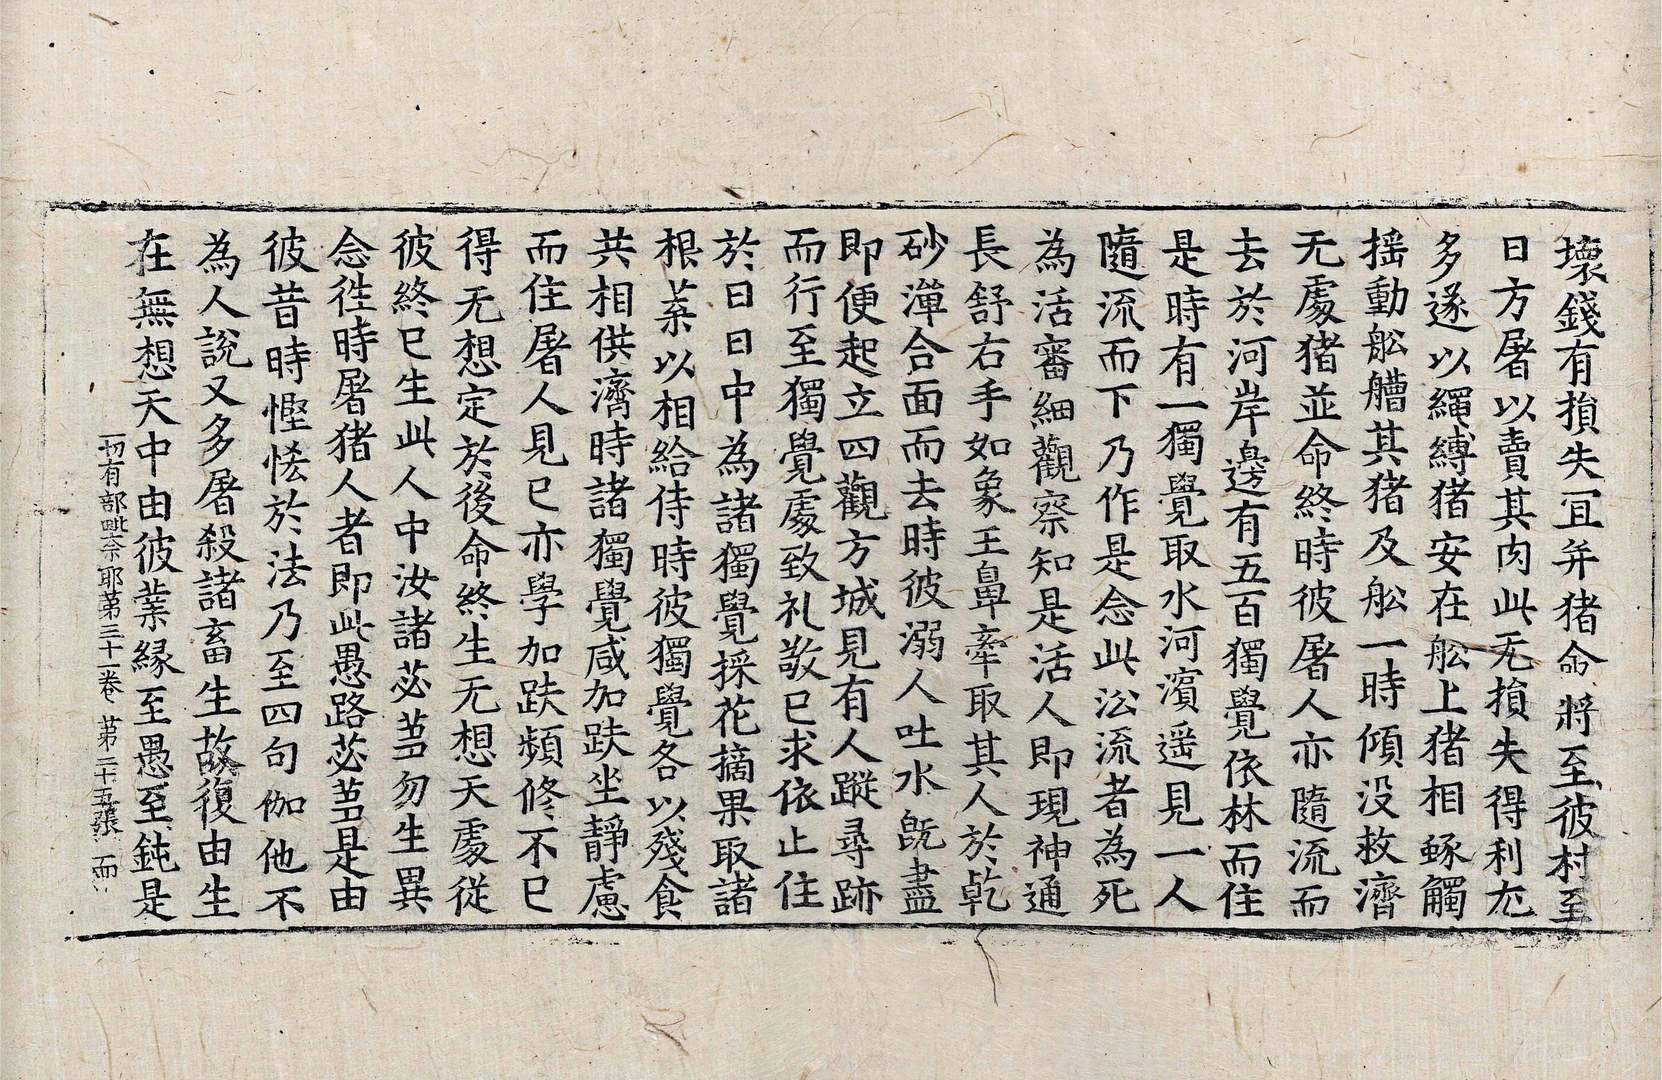 壞錢有損失冝弁猪命將至彼村至
日方屠以賣其肉此无損失得利尤
多遂以繩縛猪安在舩上猪相豥觸
揺動舩艚其猪及舩一時傾没救濟
无處猪並命終時彼屠人亦隨流而
去於河岸邊有五百獨覺依林而住
是時有一獨覺取水河濱遥見一人
隨流而下乃作是念此㳂流者為死
為活審細觀察知是活人即現神通
長舒右手如象王鼻牽取其人於乾
砂潬合面而去時彼溺人吐水旣盡
即便起立四觀方城見有人蹤尋跡
而行至獨覺處致礼敬已求依止住
於日日中為諸獨覺採花摘果取諸
根菓以相給侍時彼獨覺各以殘食
共相供濟時諸獨覺咸加趺坐靜慮
而住屠人見已亦學加趺頻修不已
得无想定於後命終生无想天處從
彼終已生此人中汝諸苾芻勿生異
念徃時屠猪人者即此愚路苾芻是由
彼昔時慳悋於法乃至四句伽他不
為人說又多屠殺諸畜生故復由生
在無想天中由彼業緣至愚至鈍是
一切有部毗奈耶第三十一卷 第二十五張 而